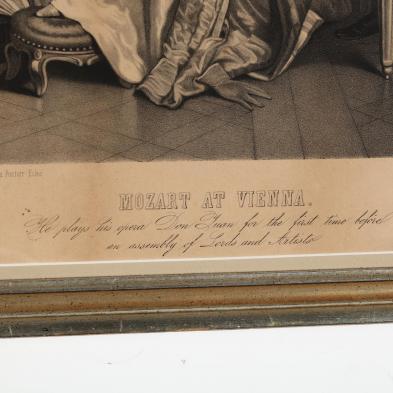 MOZART AT VIENNA.
He plays his opera Don Juan for the first time before
an assembly of Lords and Artists